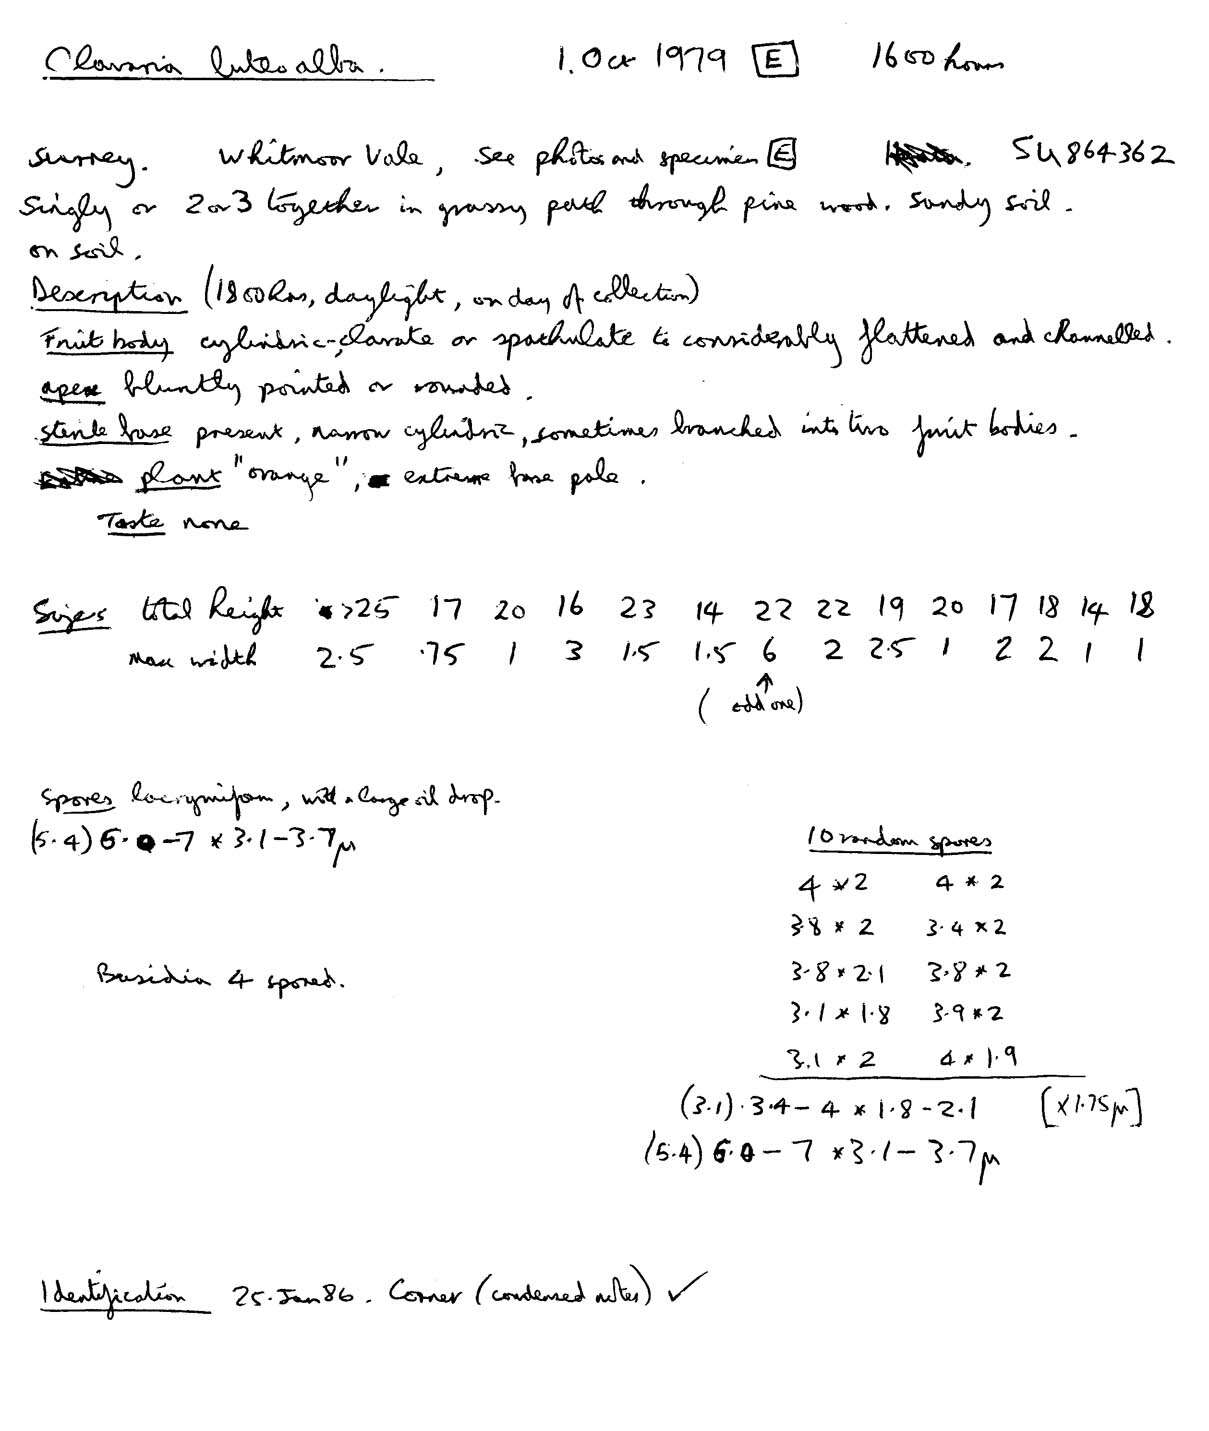 Clavaria luteoalba. 1. Oct 1979 E 1600 hours
Surrey. Whitmoor Vale, see photos and specimen E SU 864362
Singly or 2 or 3 together in grassy path through pine wood. Sandy soil.
on soil.
Description (1800 hrs, daylight, on day of collection)
Fruit body cylindric-clavate or spathulate to considerably flattened and channelled.
apex bluntly pointed or rounded.
sterile base present, narrow cylindric, sometimes branched into two fruit bodies.
plant "orange", extreme base pale.
Taste none
Sizes total height >25 17 20 16 23 14 22 22 19 20 17 18 14 18
Max width 2.5 .75 1 3 1.5 1.5 6 2 2.5 1 2 2 1 1
↑
(odd one)
Spores lacrymiform, with a large oil drop.
(5.4) 6.0-7 * 3.1-3.7µ
10 random spores
4 * 2 4 * 2
3.8 * 2 3.4 * 2
3.8 * 2.1 3.8 * 2
Basidia 4 spored.
3.1 * 1.8 3.9 * 2
3.1 * 2 4 * 1.9
(3.1).3.4-4 * 1.8-2.1 [×1.75µ]
(5.4) 6.0-7 * 3.1-3.7µ
Identification 25.Jan 86. Corner (condensed notes) ✓